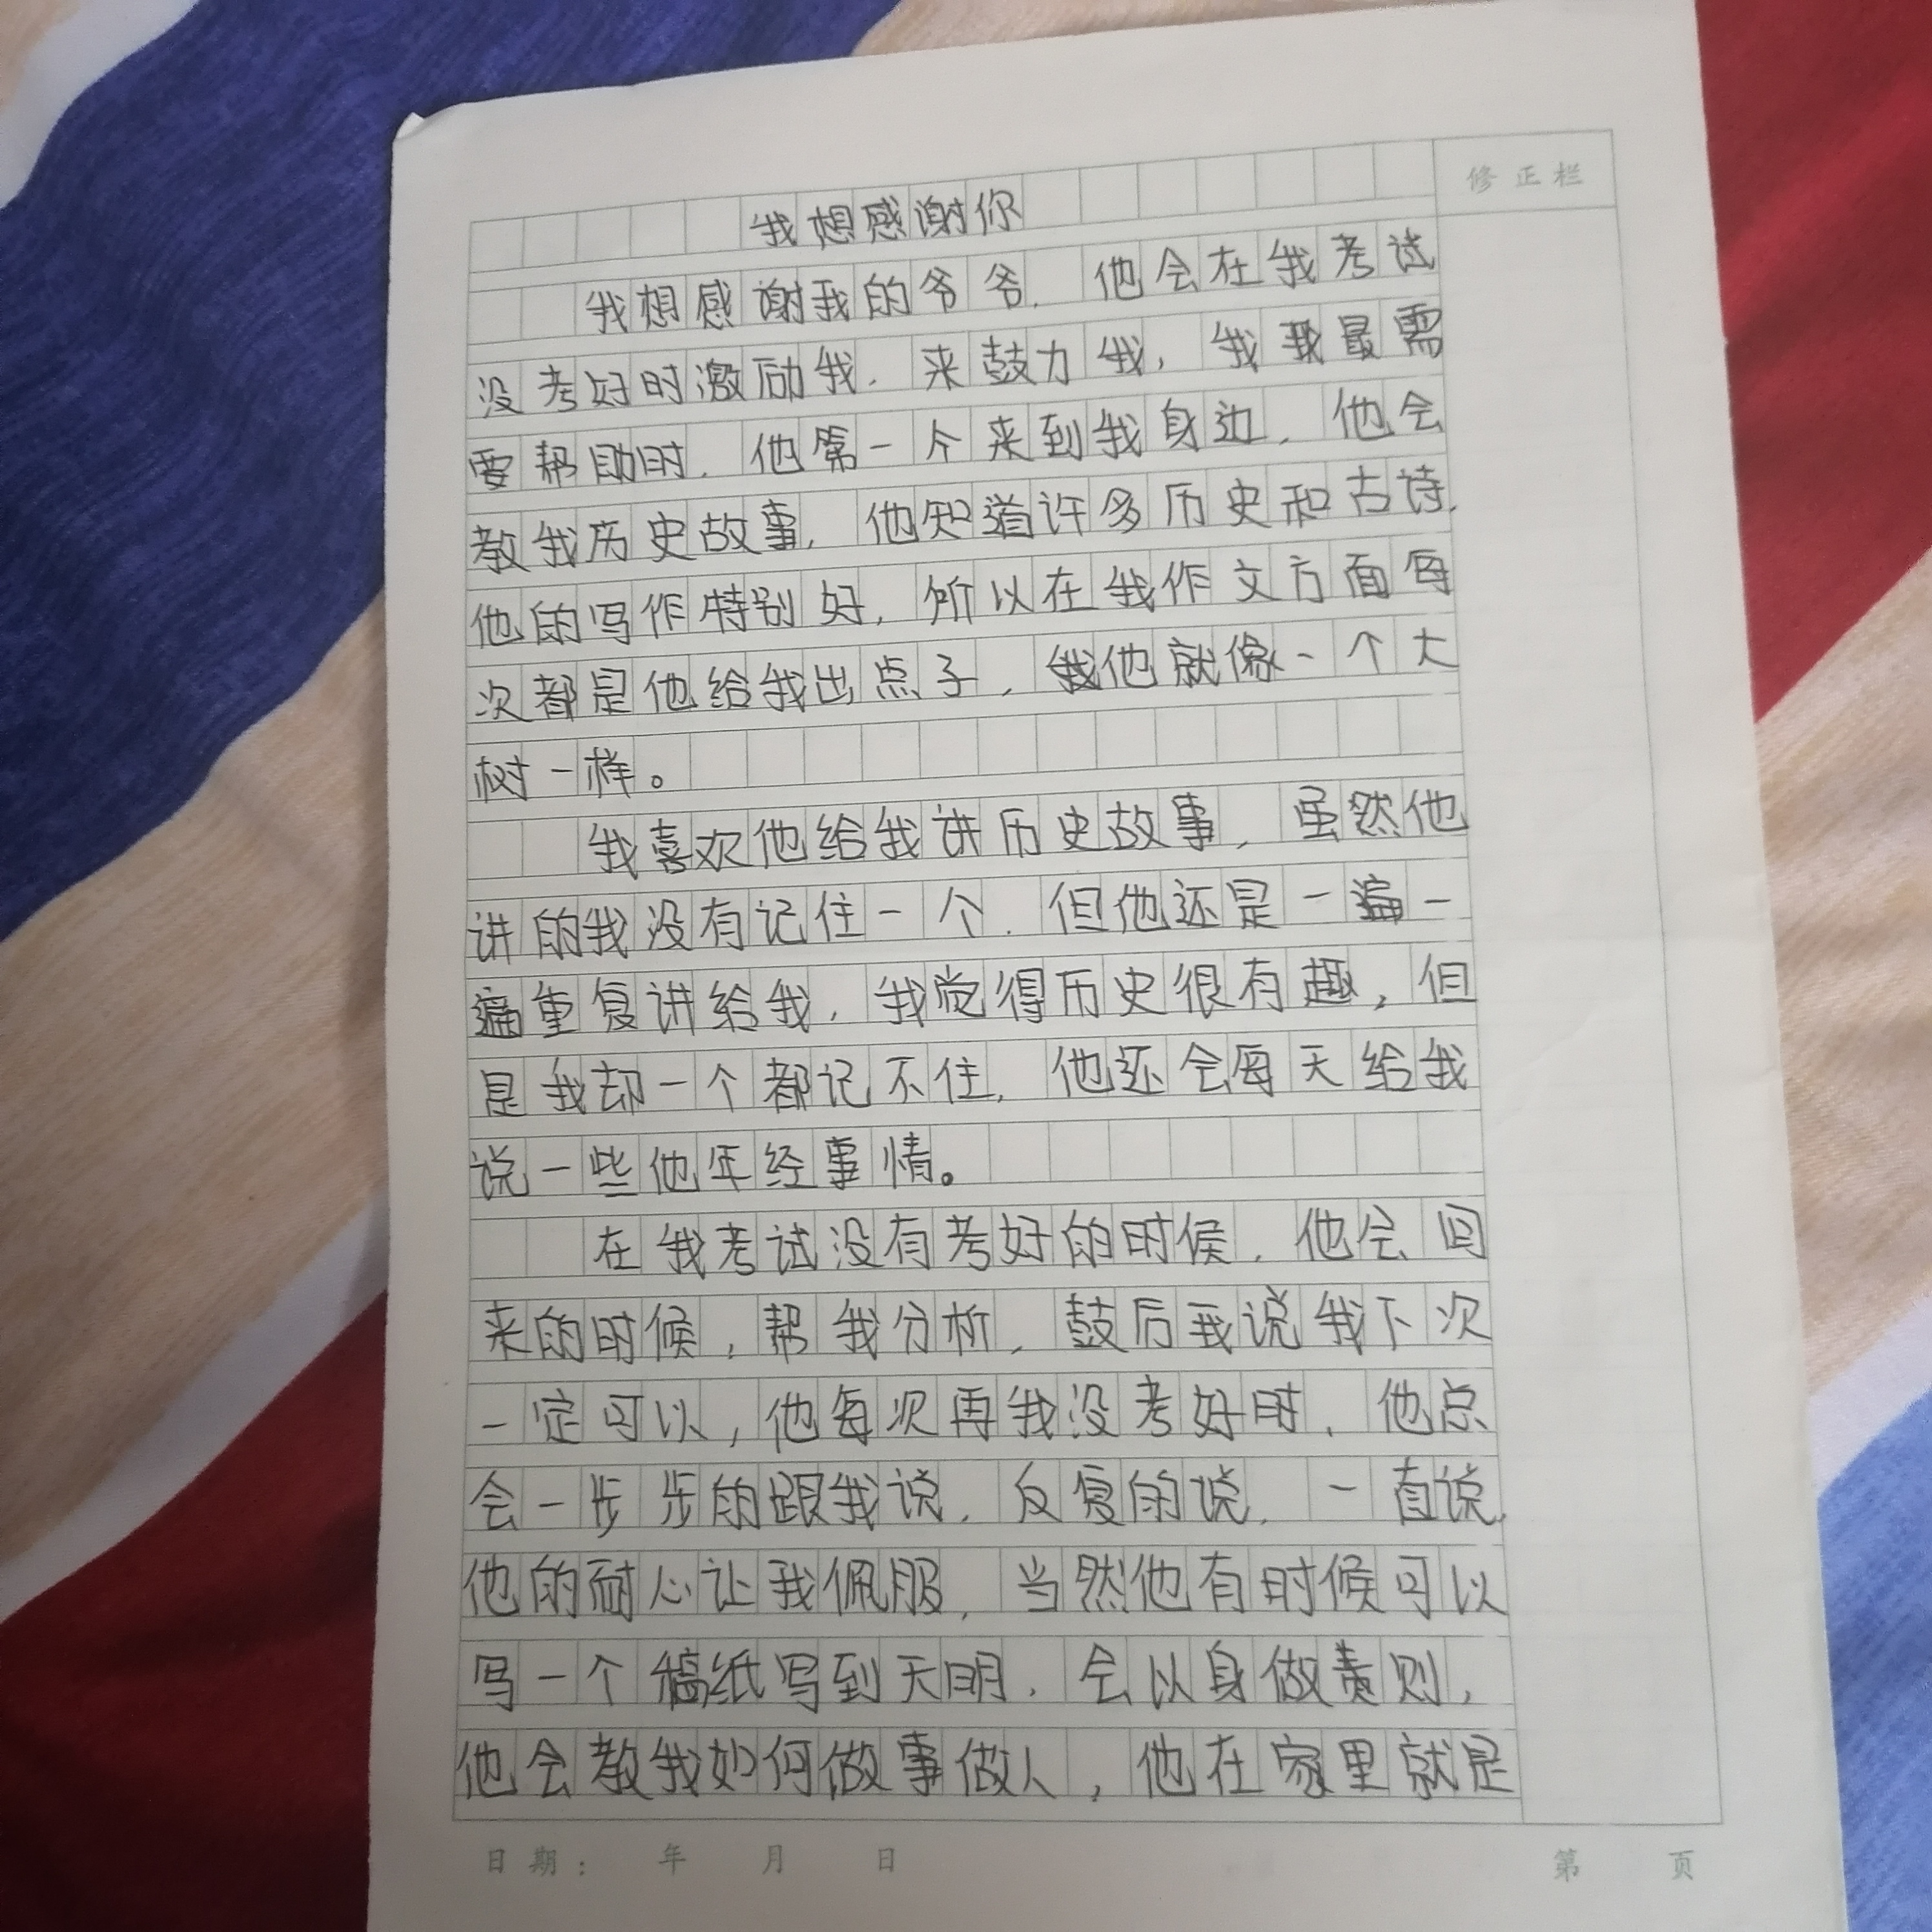 修正栏
我想感谢你
我想感谢我的爷爷，他会在我考试
没考好时激励我，来鼓力我，我我最需
要帮助时，他第一个来到我身边，他会
教我历史故事，他知道许多历史和古诗，
他的写作特别好，所以在我作文方面每
次都是他给我出点子，他就像一个大
树一样。
我喜欢他给我讲历史故事，虽然他
讲的我没有记住一个，但他还是一遍一
遍重复讲给我，我觉得历史很有趣，但
是我却一个都记不住，他还会每天给我
说一些他年经事情。
在我考试没有考好的时候，他会回
来的时候，帮我分析，鼓后我说我下次
一定可以，他每次再我没考好时，他总
会一步步的跟我说，反复的说，一直说，
他的耐心让我佩服，当然他有时候可以
写一个稿纸写到天明，会以身做责则，
他会教我如何做事做人，他在家里就是
日期： 年 月 日
第 页